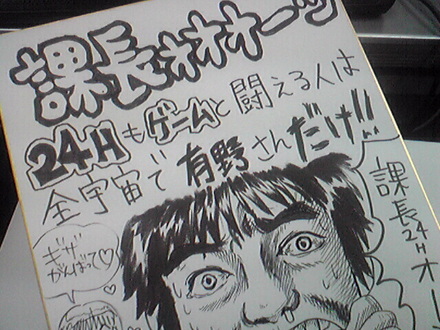 課長オオオーッ
24Hもゲームと闘える人は
全宇宙で有野さんだけ!!
課長24Hオー
ギザ
がんばって♡